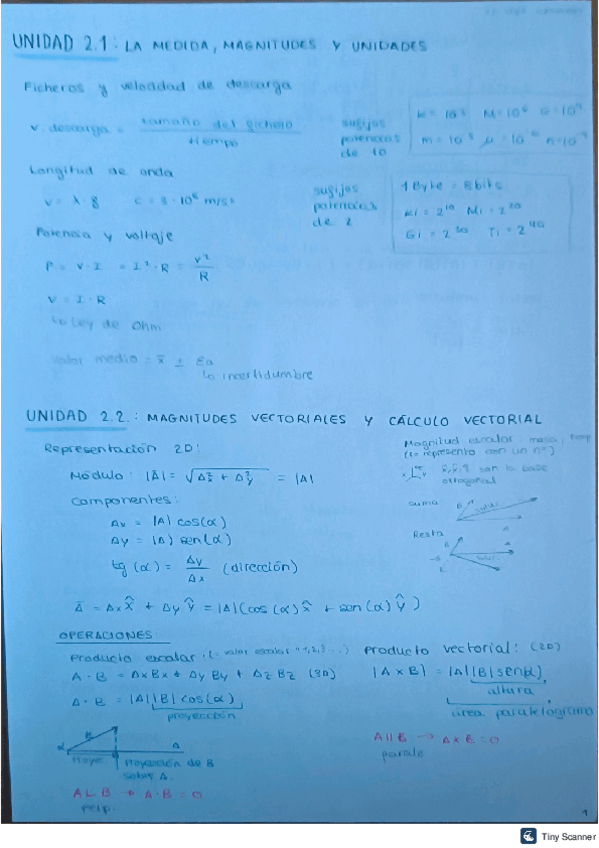 UNIDAD 2.1: LA MEDIDA, MAGNITUDES Y UNIDADES
Ficheros y velocidad de descarga
v. descarga = tamaño del fichero / tiempo
sufijos potencias de 10
K = 10³ M = 10⁶ G = 10⁹
m = 10⁻³ μ = 10⁻⁶ n = 10⁻⁹
Longitud de onda
v = λ · f c = 3 · 10⁸ m/s
sufijos potencias de 2
1 Byte = 8 bits
Ki = 2¹⁰ Mi = 2²⁰
Gi = 2³⁰ Ti = 2⁴⁰
Potencia y voltaje
P = V · I = I² · R = V² / R
V = I · R
↳ Ley de Ohm
Valor medio = x̄ ± Ea
↳ incertidumbre
UNIDAD 2.2.: MAGNITUDES VECTORIALES Y CÁLCULO VECTORIAL
Representación 2D:
Magnitud escalar: masa, temp
(se represento con un nº)
son la base
ortogonal
Módulo: |A| = √(Ax² + Ay²) = |A|
Componentes:
Ax = |A| cos(α)
Ay = |A| sen(α)
tg (α) = Ay / Ax (dirección)
Suma
Resta
A = Ax x̂ + Ay ŷ = |A| (cos(α) x̂ + sen(α) ŷ)
OPERACIONES
Producto escalar: (= valor escalar "1,2,3...)
A · B = AxBx + AyBy + AzBz (3D)
A · B = |A||B| cos(α)
proyección
B
α
A
Proye.
Proyección de B
sobre A.
A⊥B → A·B = 0
perp.
Producto vectorial: (2D)
|A x B| = |A||B| sen(α)
altura
área paralelogramo
A||B → A x B = 0
parale
1
Tiny Scanner